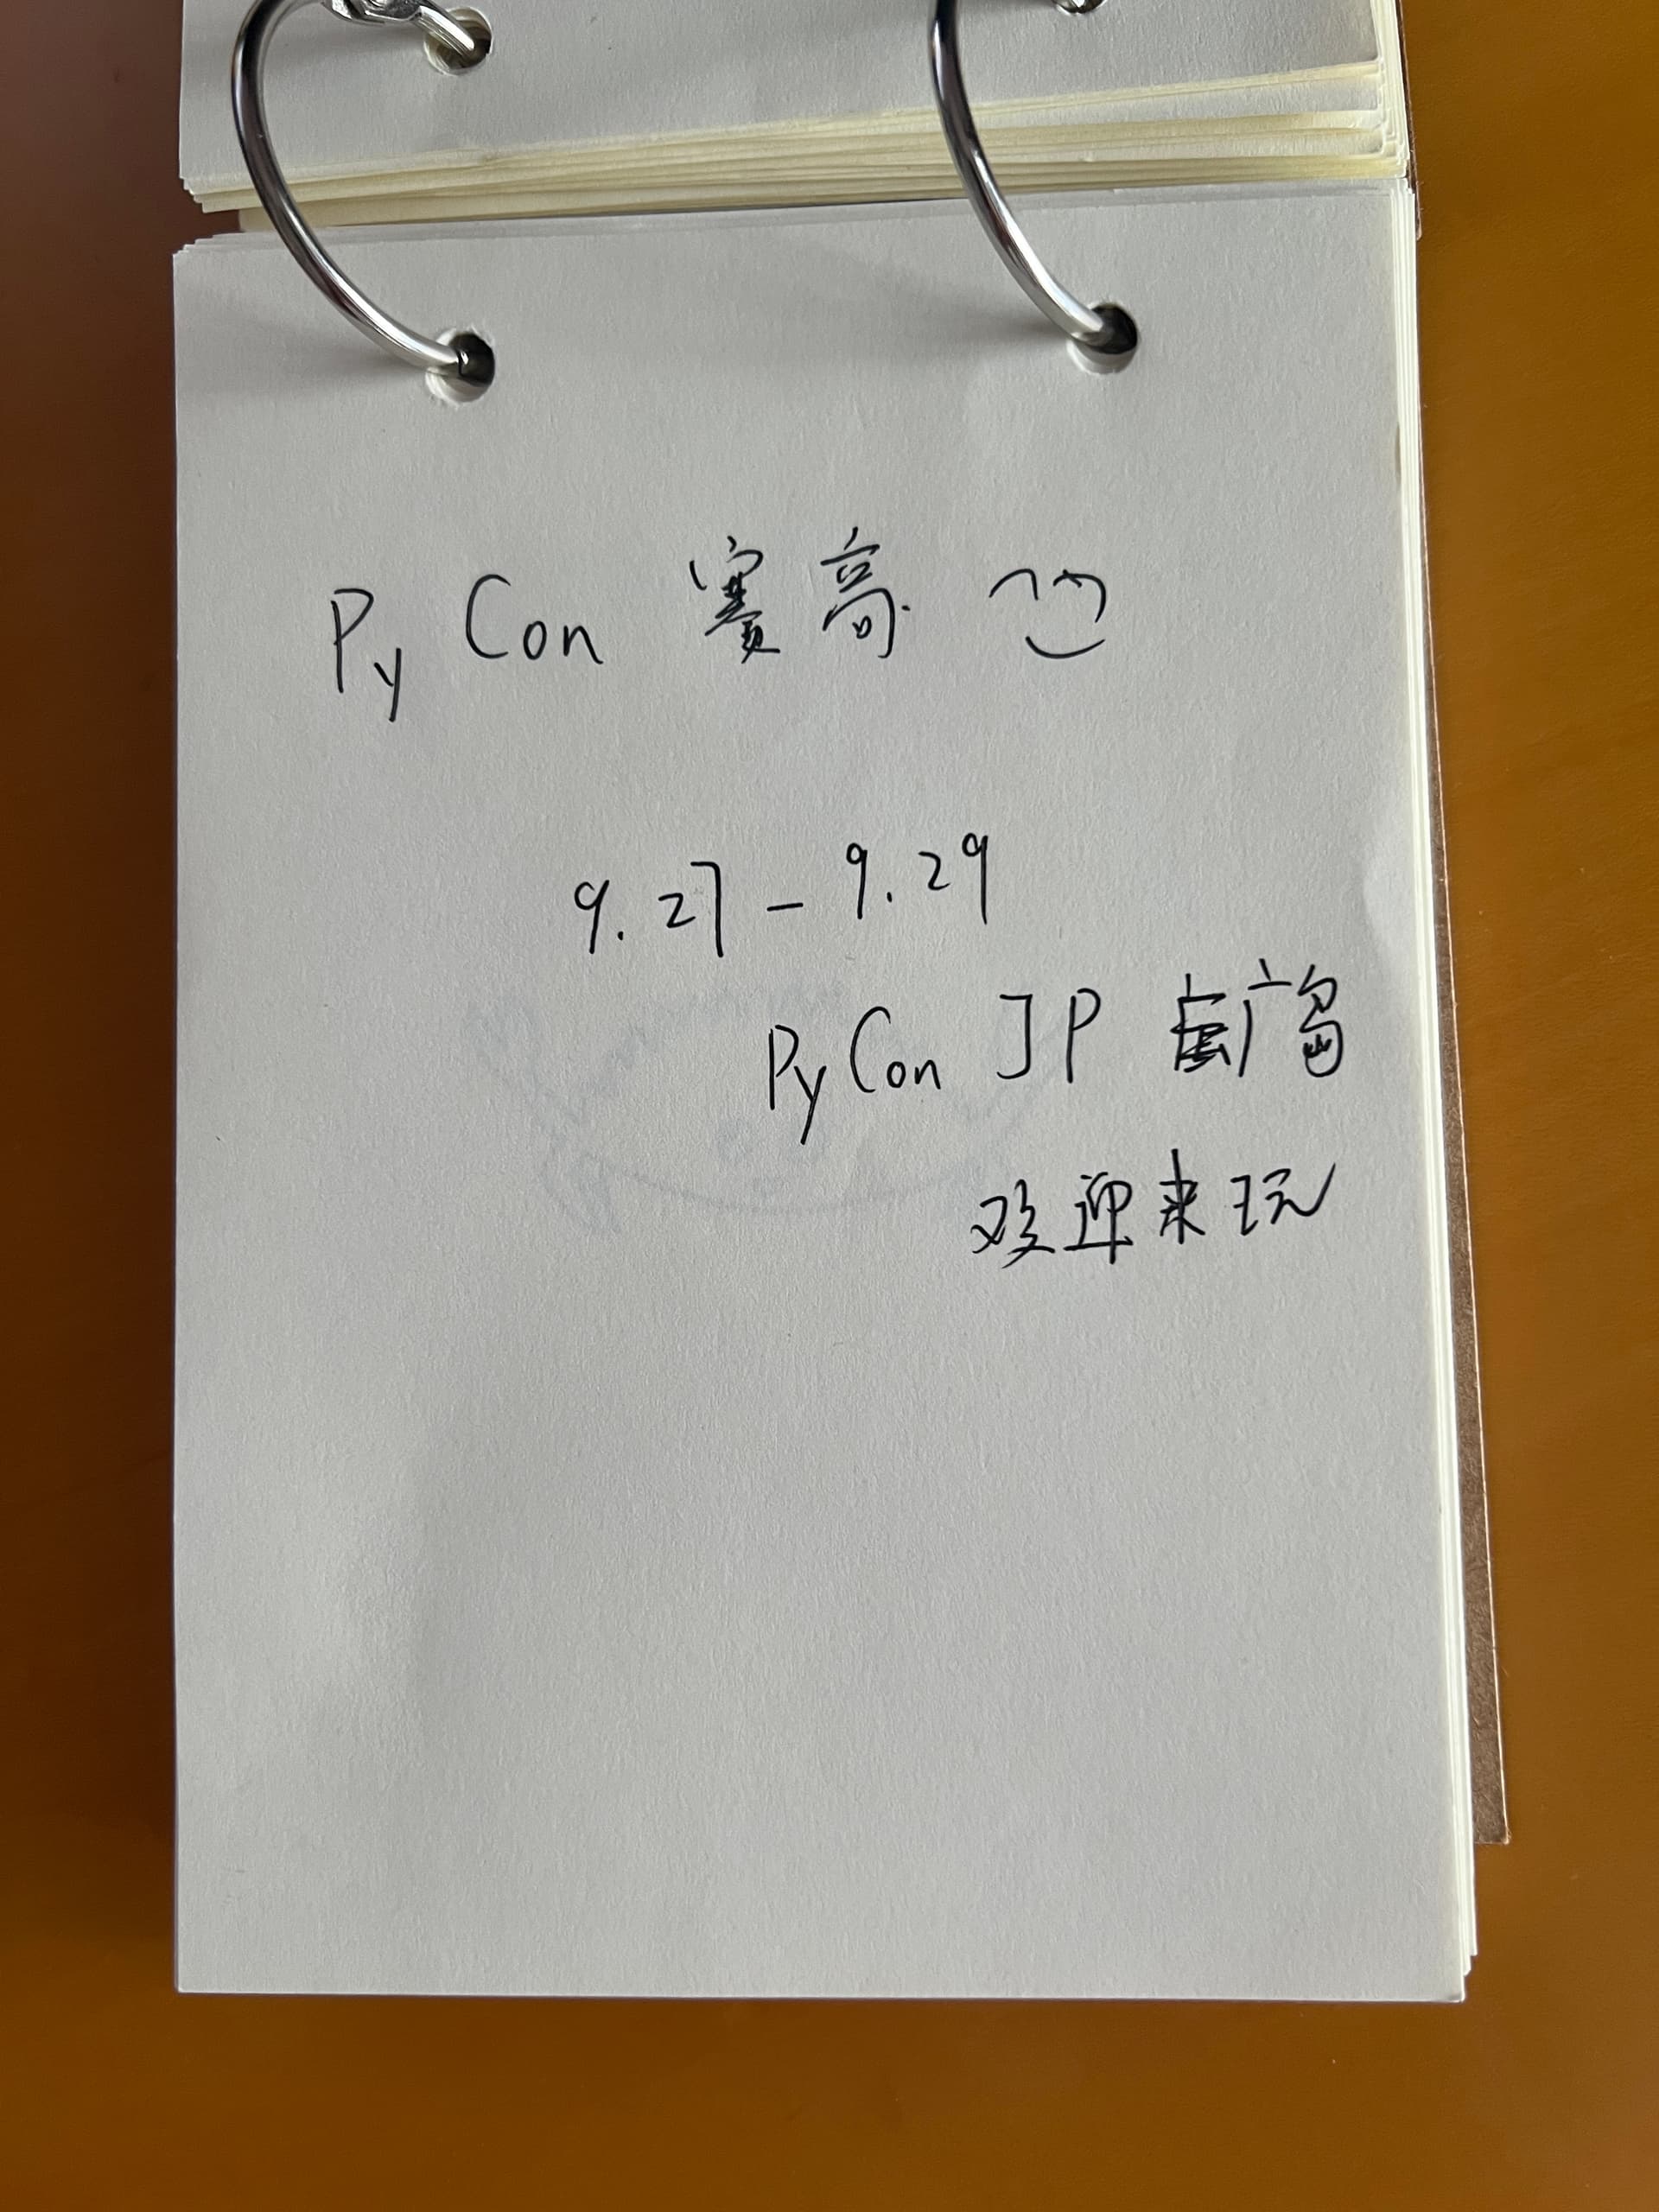 PyCon 赛高
9.27 - 9.29
PyCon JP 广岛
欢迎来玩